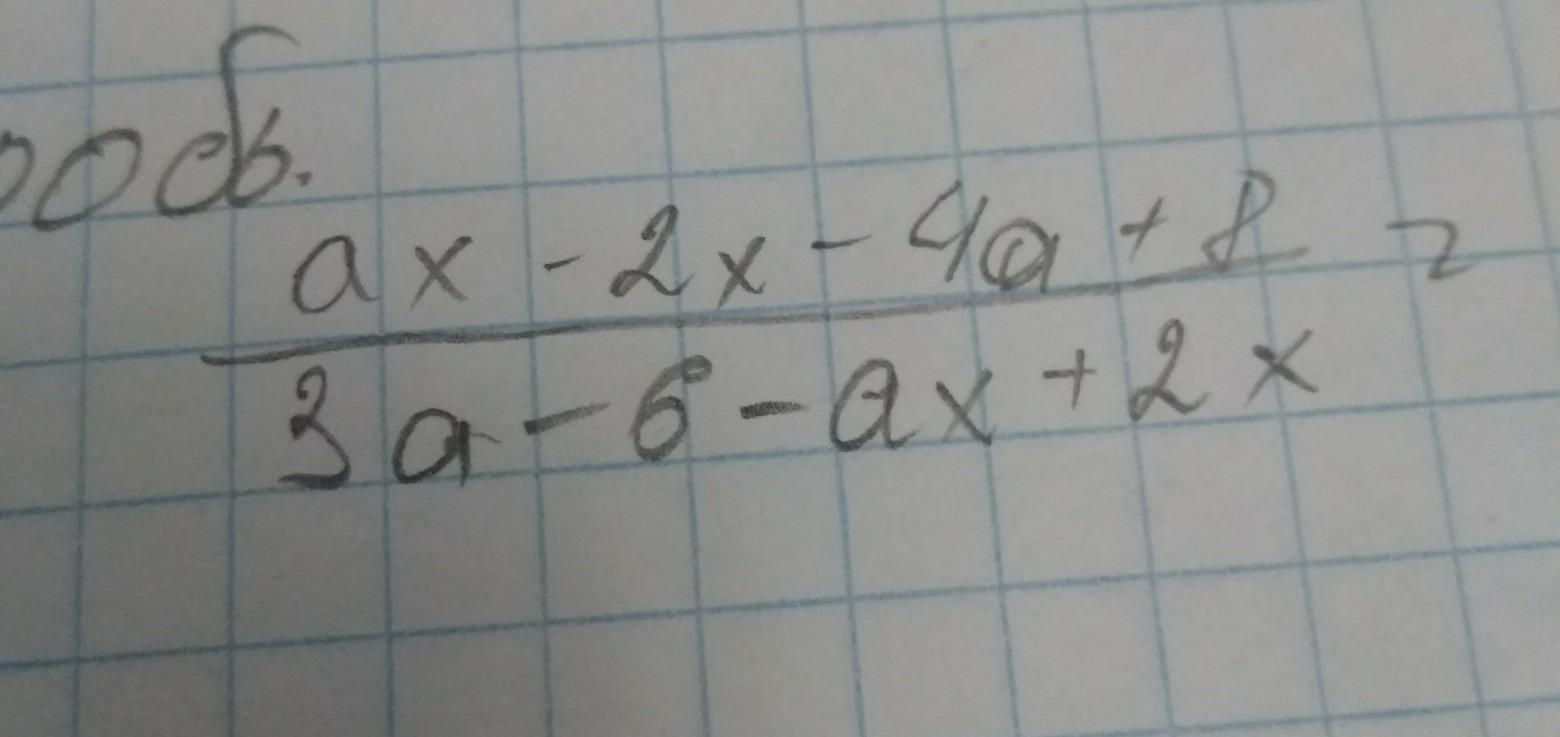 ax - 2x - 4a + 8 =
3a - 6 - ax + 2x